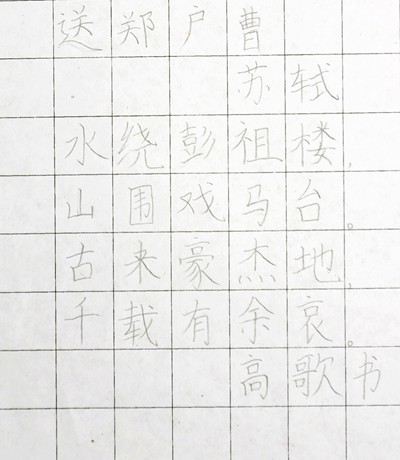 送郑户曹
苏轼
水绕彭祖楼，
山围戏马台。
古来豪杰地，
千载有余哀。
高歌书